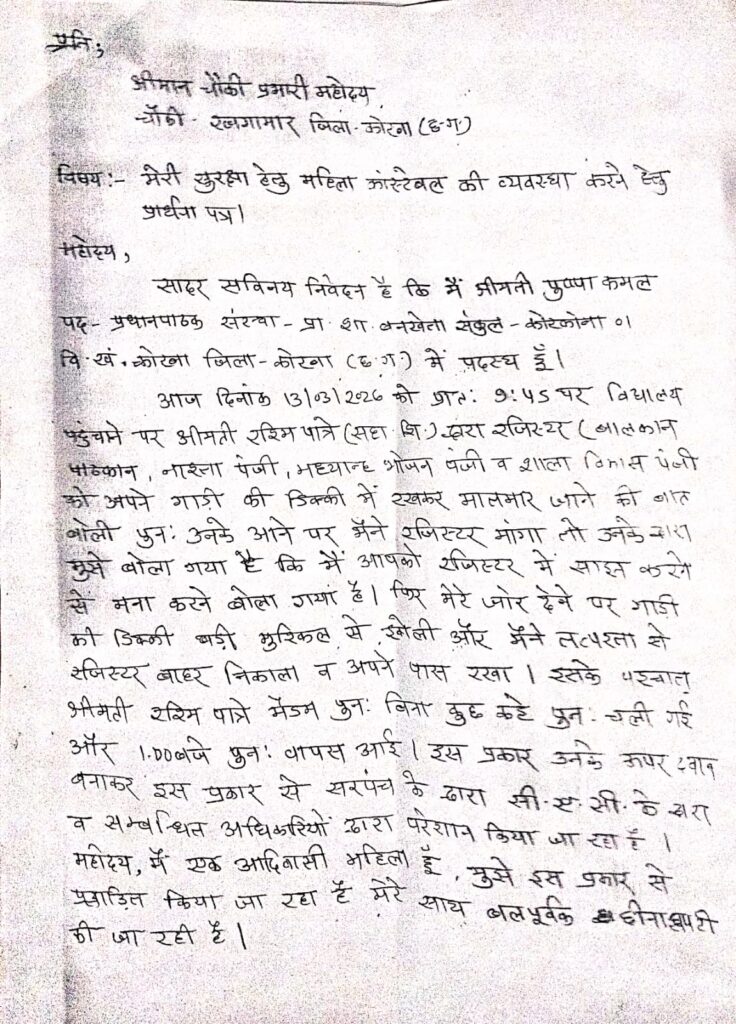 प्रति,
श्रीमान चौकी प्रभारी महोदय
चौकी - रजगामार जिला - कोरबा (छ.ग.)
विषय :- मेरी सुरक्षा हेतु महिला कांस्टेबल की व्यवस्था करने हेतु
प्रार्थना पत्र।
महोदय,
सादर सविनय निवेदन है कि मैं श्रीमती पुष्पा कमल
पद - प्रधानपाठक संस्था - प्रा. शा. बनखेता संकुल - कोरकोमा 01
वि.खं. कोरबा जिला - कोरबा (छ.ग.) में पदस्थ हूँ।
आज दिनांक 13/03/2026 को प्रातः 9:45 पर विद्यालय
पहुंचाने पर श्रीमती रश्मि पात्रे (सहा. शि.) द्वारा रजिस्टर (बालकान
पाठकान, नाश्ता पंजी, मध्यान्ह भोजन पंजी व शाला विकास पंजी
को अपने गाडी की डिक्की में रखकर मालमार जाने की बात
बोली पुनः उनके आने पर मैंने रजिस्टर मांगा तो उनके द्वारा
मुझे बोला गया है कि मैं आपको रजिस्टर में साइन करने
से मना करने बोला गया है। फिर मेरे जोर देने पर गाडी
की डिक्की बडी मुश्किल से खोली और मैंने तत्परता से
रजिस्टर बाहर निकाला व अपने पास रखा। इसके पश्चात्
श्रीमती रश्मि पात्रे मैडम पुनः बिना कुछ कहे पुनः चली गई
और 1.00 बजे पुनः वापस आई। इस प्रकार उनके ऊपर दबाव
बनाकर इस प्रकार से सरपंच के द्वारा सी.ए.सी. के द्वारा
व सम्बन्धित अधिकारियों द्वारा परेशान किया जा रहा है।
महोदय, मैं एक आदिवासी महिला हूँ, मुझे इस प्रकार से
प्रताड़ित किया जा रहा है मेरे साथ बलपूर्वक छीनाझपटी
की जा रही है।